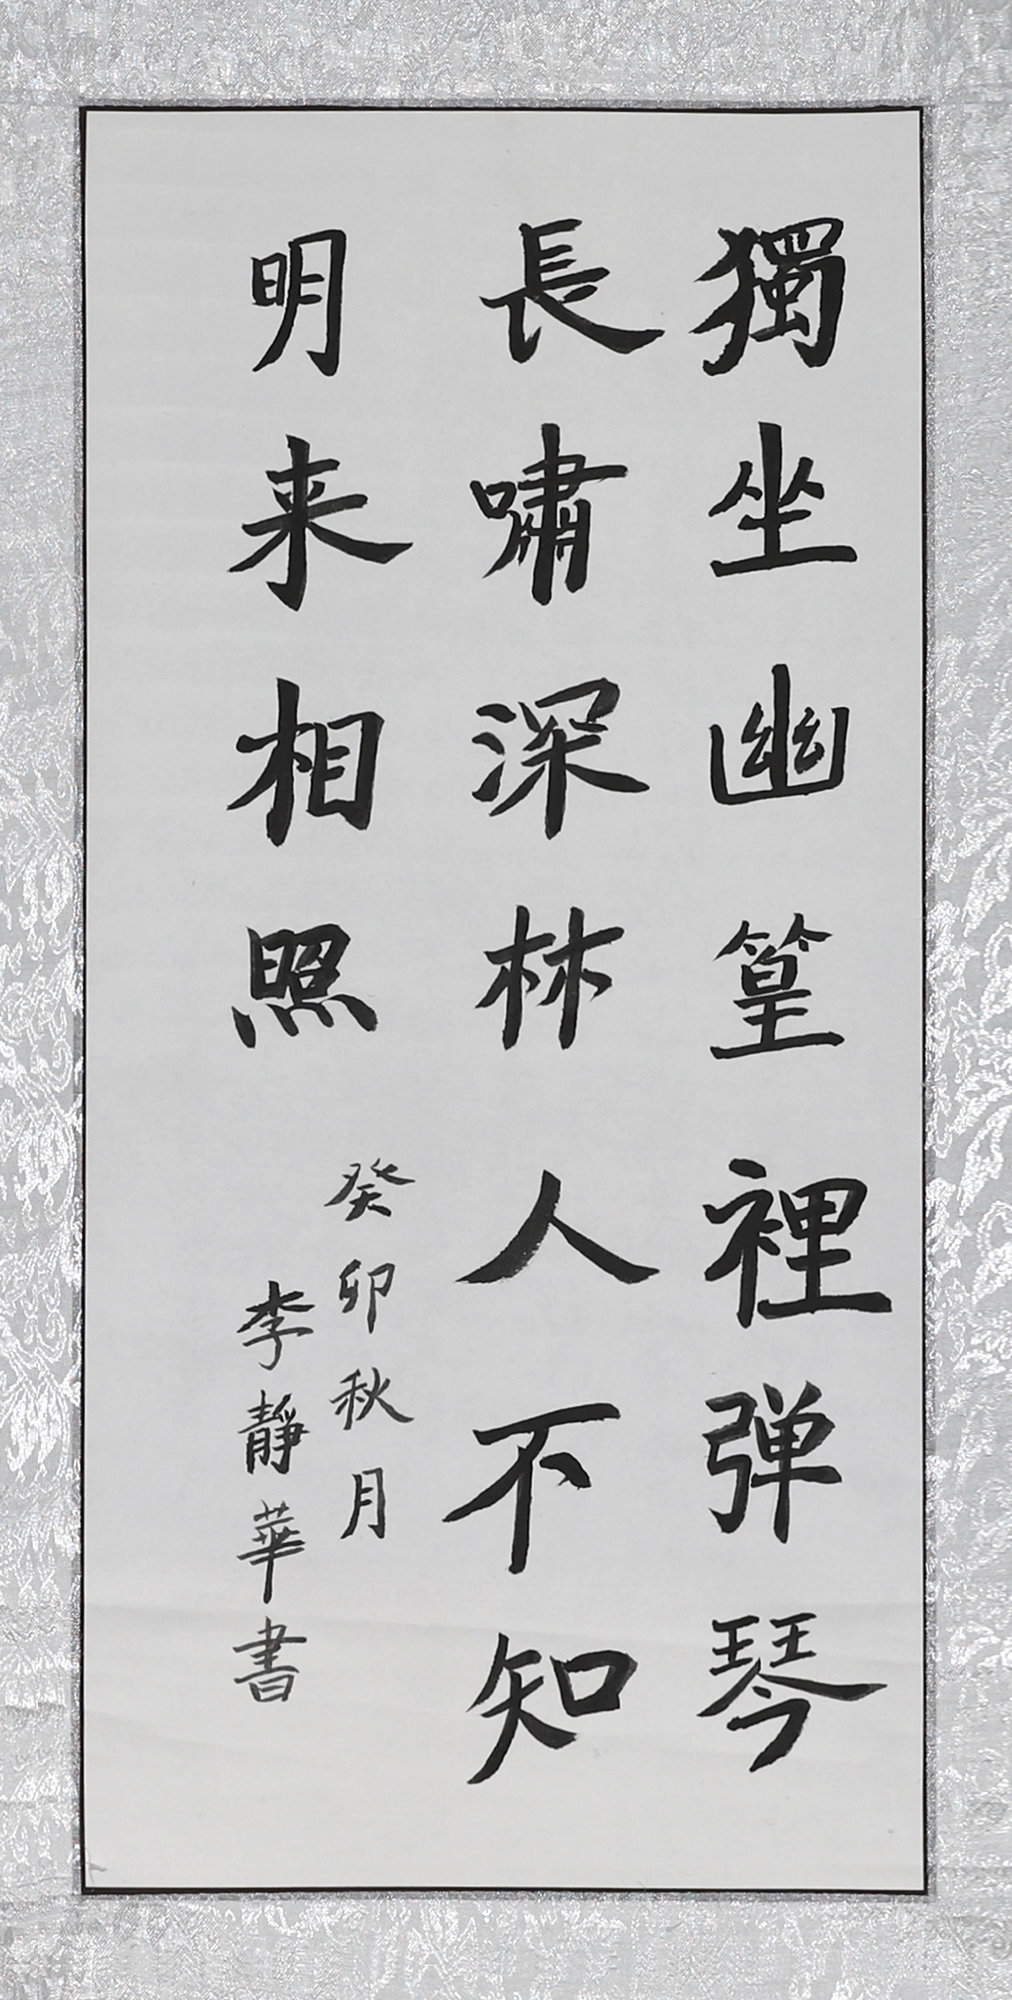 獨坐幽篁裡弹琴
長嘯深林人不知
明来相照
癸卯秋月
李靜華書